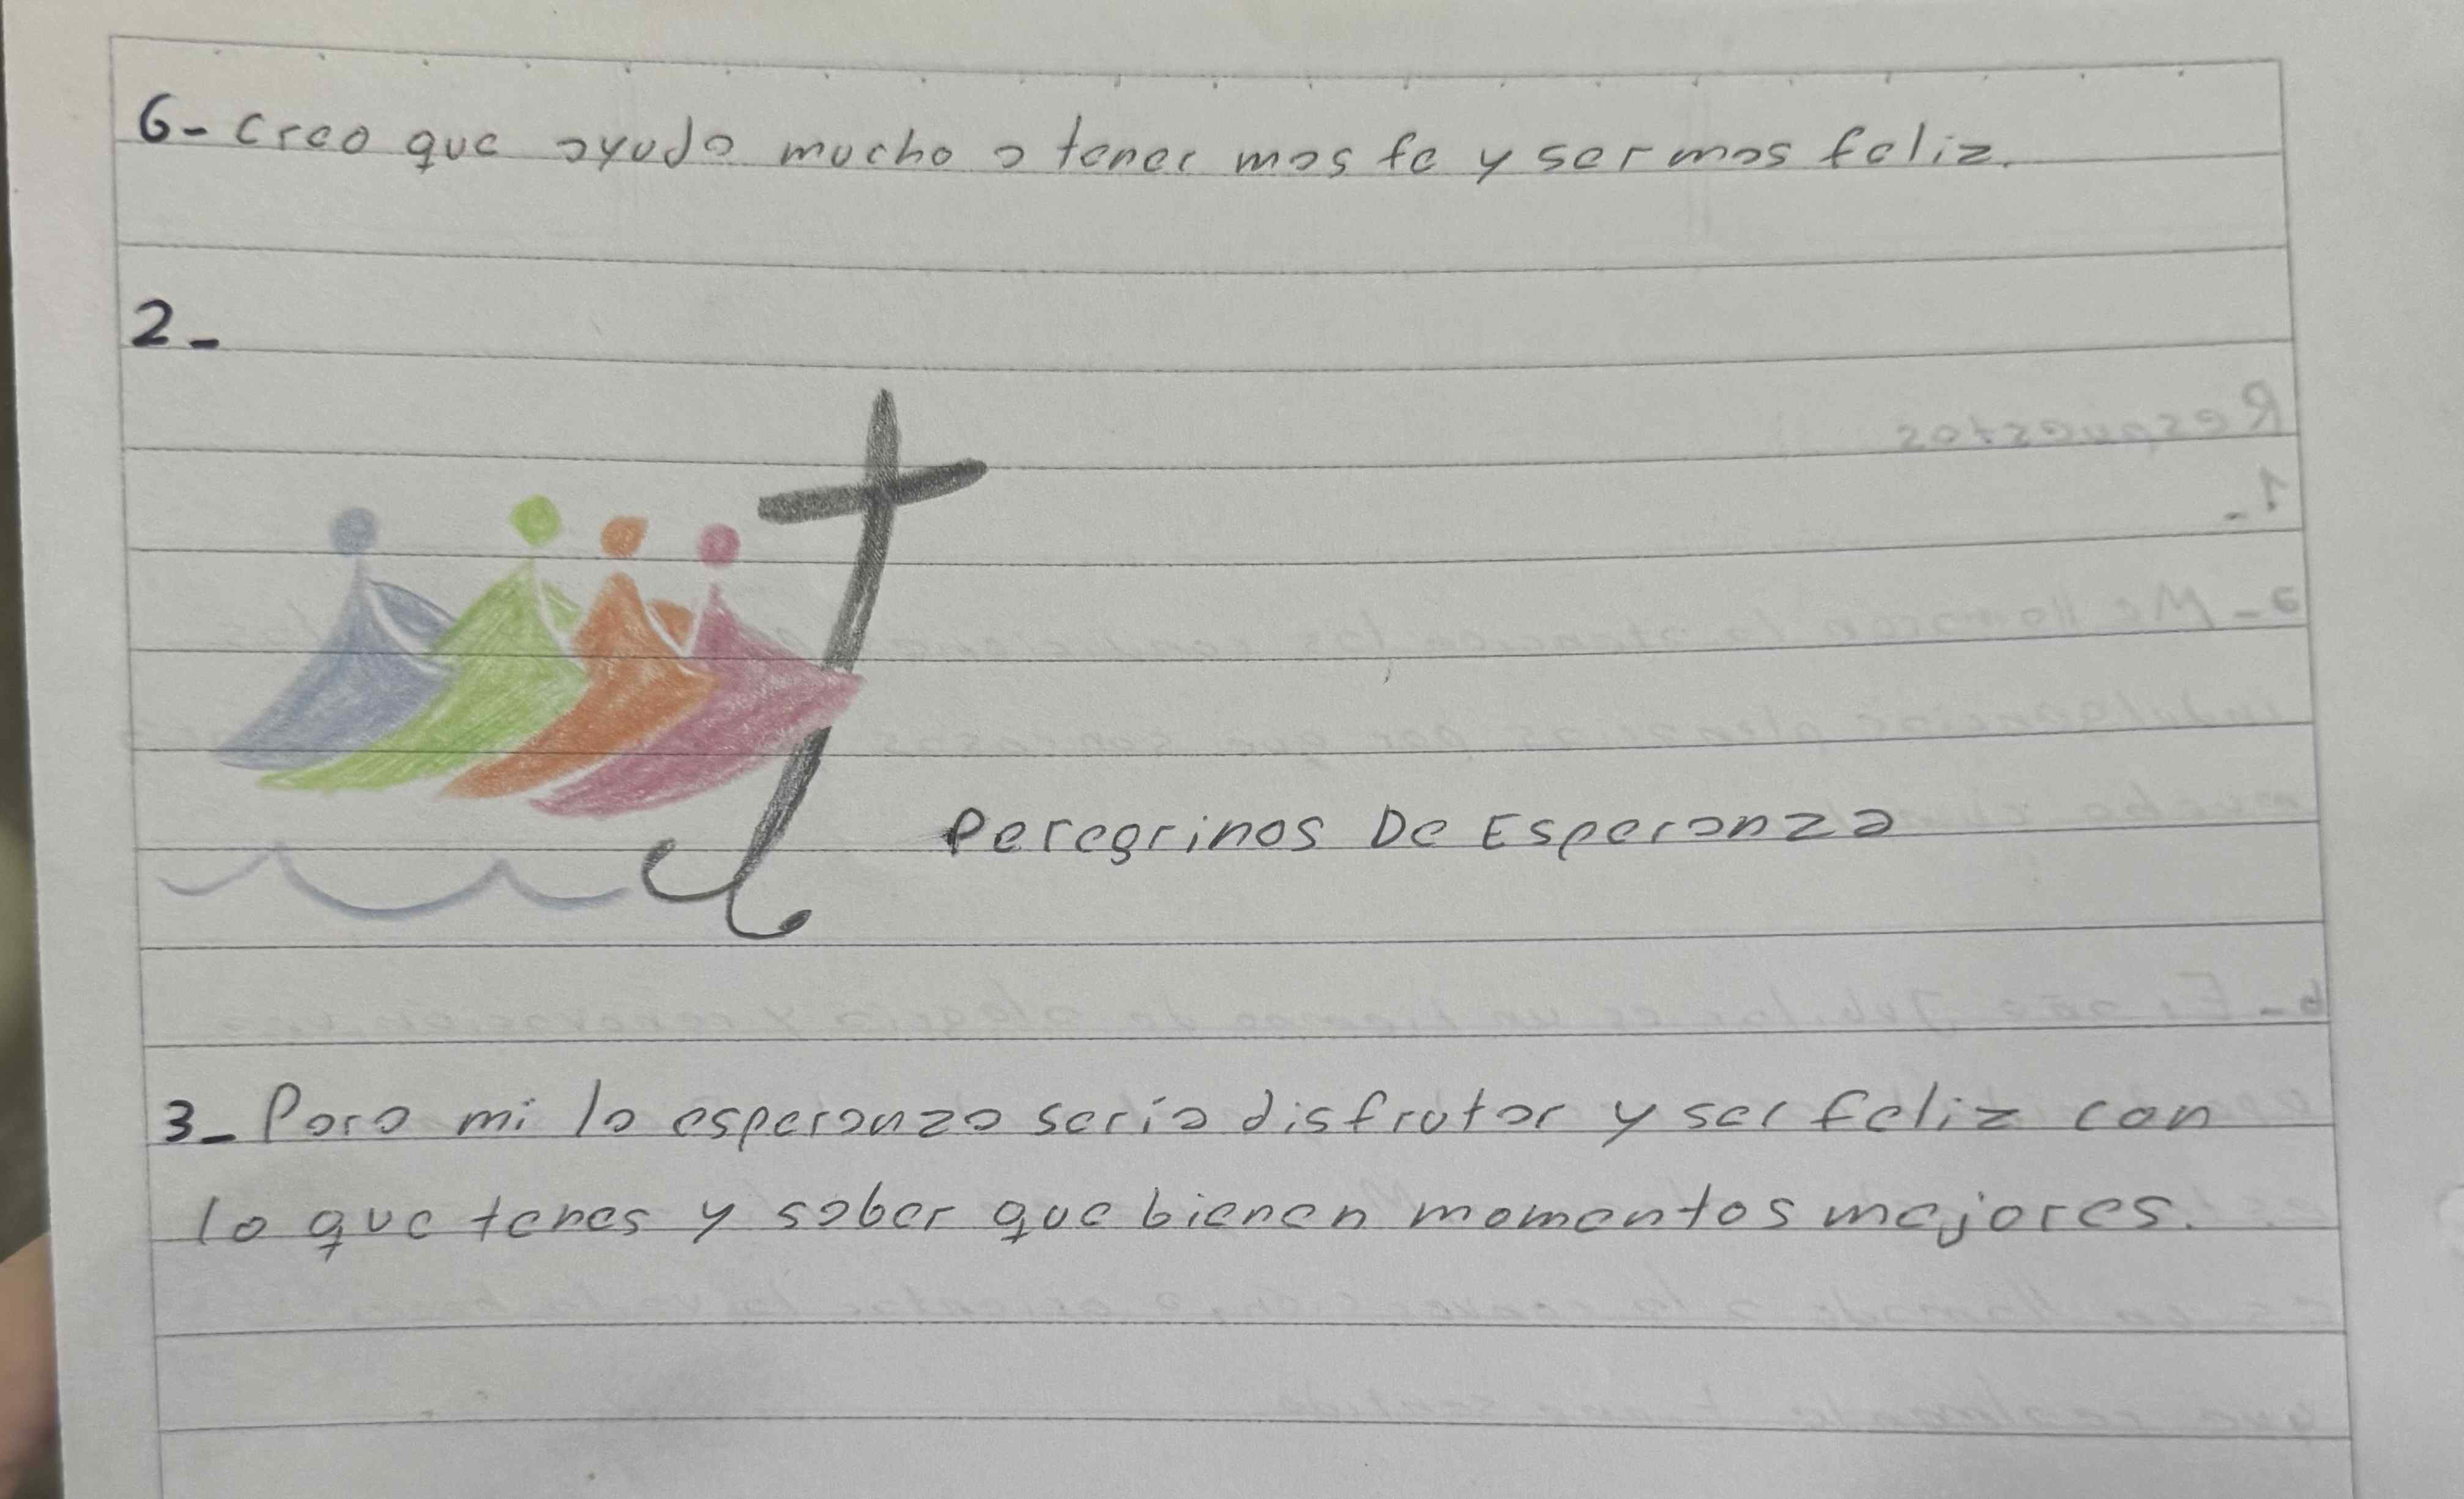 6- Creo que ayuda mucho a tener mas fe y ser mas feliz.
2-
Peregrinos De Esperanza
Respuestas
1-
3- Para mi la esperanza seria disfrutar y ser feliz con
lo que tenes y saber que bienen momentos mejores.